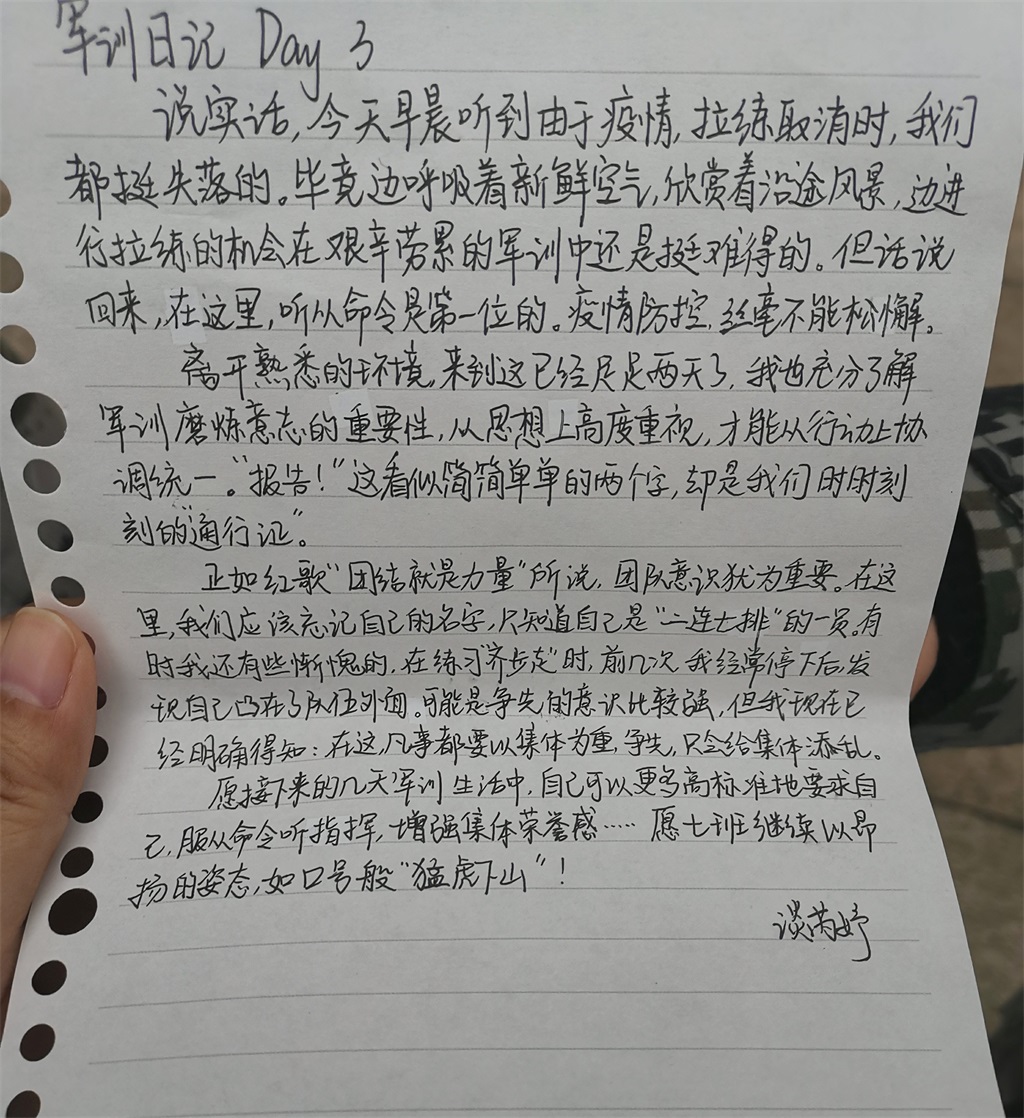 军训日记 Day 3
说实话,今天早晨听到由于疫情,拉练取消时,我们
都挺失落的。毕竟边呼吸着新鲜空气,欣赏着沿途风景,边进
行拉练的机会在艰辛劳累的军训中还是挺难得的。但话说
回来,在这里,听从命令是第一位的。疫情防控,丝毫不能松懈。
离开熟悉的环境,来到这已经足足两天了,我也充分了解
军训磨炼意志的重要性,从思想上高度重视,才能从行动上协
调统一。“报告!”这看似简简单单的两个字,却是我们时时刻
刻的“通行证”。
正如红歌“团结就是力量”所说,团队意识犹为重要。在这
里,我们应该忘记自己的名字,只知道自己是“二连七排”的一员。有
时我还有些惭愧的,在练习“齐步走”时,前几次我经常停下后,发
现自己凸在了队伍外面。可能是争先的意识比较强,但我现在已
经明确得知:在这,凡事都要以集体为重,争先,只会给集体添乱。
愿接下来的几天军训生活中,自己可以更多高标准地要求自
己,服从命令听指挥,增强集体荣誉感…… 愿七班继续以昂
扬的姿态,如口号般“猛虎下山”!
谈芮妤